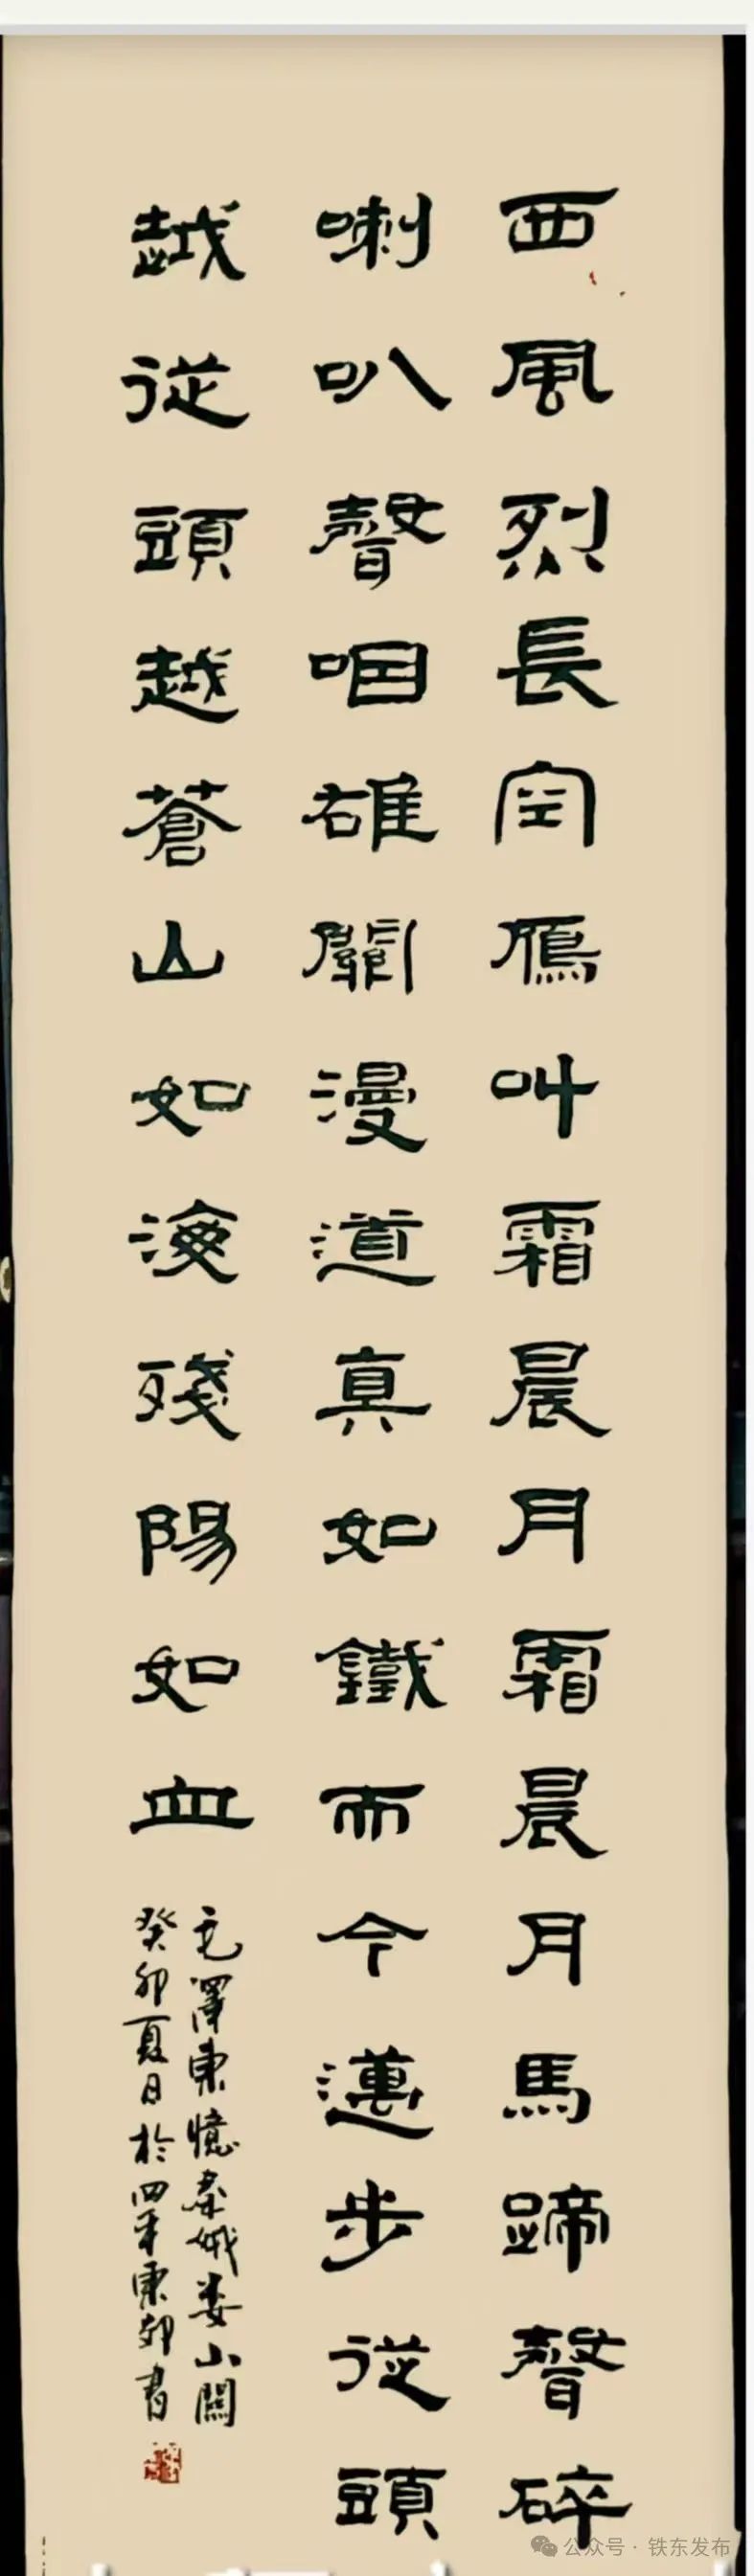 西風烈長空鴈叫霜晨月霜晨月馬蹄聲碎
喇叭聲咽雄關漫道真如鐵而今邁步從頭
越從頭越蒼山如海殘陽如血
毛澤東憶秦娥婁山關
癸卯夏日於四平東郊書
公众号 · 铁东发布